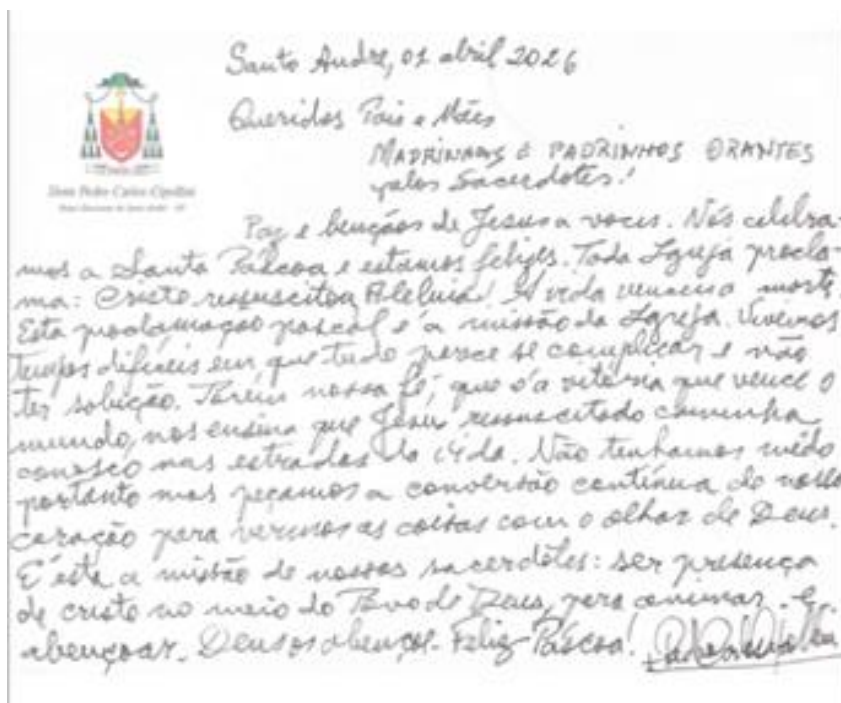 Santo André, 01 abril 2026
Queridos Pais e Mães
MADRINHAS e PADRINHOS ORANTES
pelos Sacerdotes!
Dom Pedro Carlos Cipollini
Paz e bençãos de Jesus a voces. Nós celebra-
mos a Santa Páscoa e estamos felizes. Toda Igreja procla-
ma: Cristo ressuscitou Aleluia! A vida venceu a morte.
Esta proclamação pascal é a missão da Igreja. Vivemos
tempos difíceis em que tudo parece se complicar e não
ter solução. Porém nossa fé, que é a vitória que vence o
mundo, nos ensina que Jesus ressuscitado caminha
conosco nas estradas da vida. Não tenhamos mêdo
portanto mas peçamos a conversão contínua de nosso
coração para vermos as coisas com o olhar de Deus.
É esta a missão de nossos sacerdotes: ser presença
de cristo no meio do Povo de Deus, para animar e
abençoar. Deus os abençoe. Feliz Páscoa!